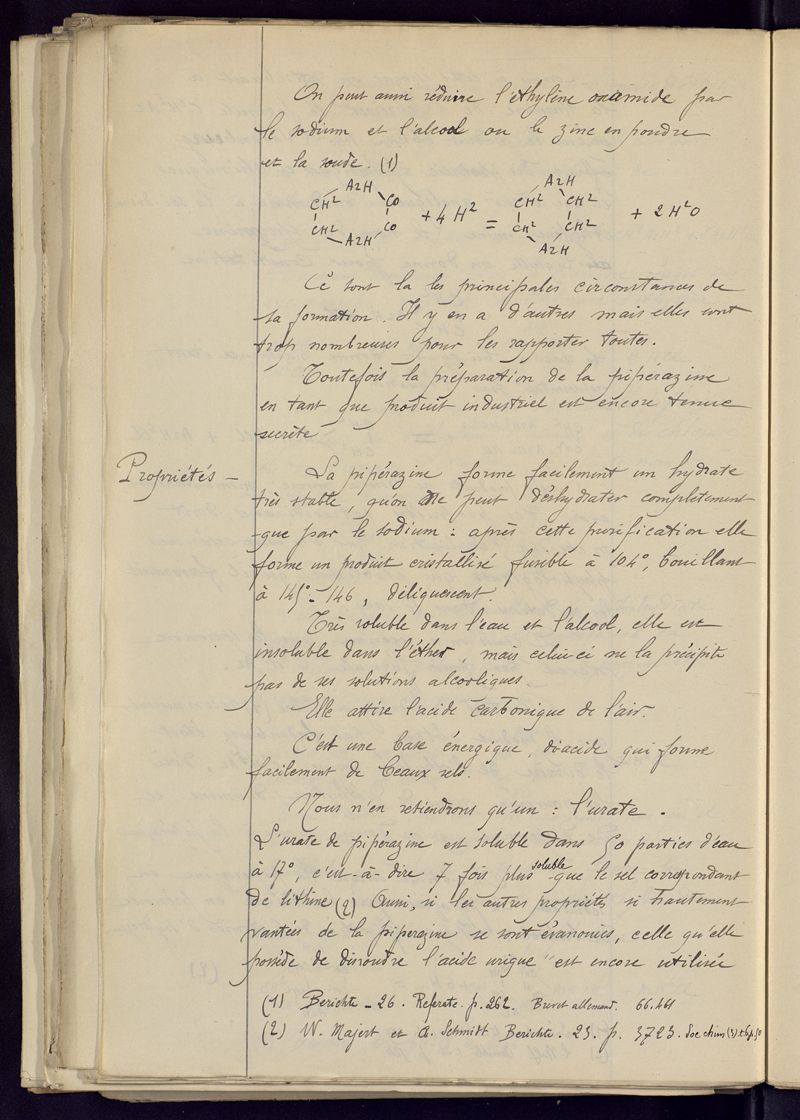 On peut aussi réduire l'éthylène oxamide par
le sodium et l'alcool ou le zinc en poudre
et la soude. (1)
AzH AzH
CH² CO CH² CH²
+ 4 H² = + 2 H²O
CH² CO CH² CH²
AzH AzH
Ce sont là les principales circonstances de
sa formation. Il y en a d'autres mais elles sont
trop nombreuses pour les rapporter toutes.
Toutefois la préparation de la pipérazine
en tant que produit industriel est encore tenue
secrète
Propriétés — La pipérazine forme facilement un hydrate
très stable, qu'on ne peut déshydrater complètement
que par le sodium : après cette purification elle
forme un produit cristallisé fusible à 104°, bouillant
à 145° - 146, déliquescent.
Très soluble dans l'eau et l'alcool, elle est
insoluble dans l'éther, mais celui-ci ne la précipite
pas de ses solutions alcooliques.
Elle attire l'acide carbonique de l'air.
C'est une base énergique, diacide qui forme
facilement de beaux sels.
Nous n'en retiendrons qu'un : l'urate.
L'urate de pipérazine est soluble dans 50 parties d'eau
à 17°, c'est-à-dire 7 fois plus soluble que le sel correspondant
de lithine (2) Aussi, si les autres propriétés si hautement
vantées de la piperazine se sont évanouies, celle qu'elle
possède de dissoudre l'acide urique est encore utilisée
(1) Berichte - 26. Referate. p. 262. Brevet allemand. 66.461
(2) W. Majert et A. Schmidt Berichte. 23. p. 3723. Soc chim (3)